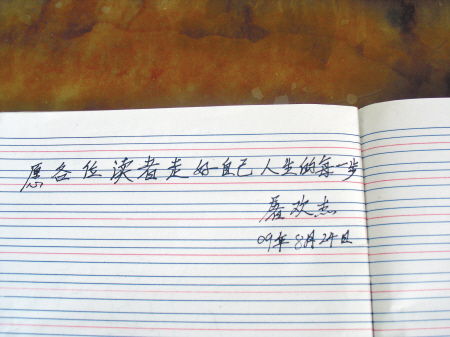 愿各位读者走好自己人生的每一步
屠欢杰
09年8月24日